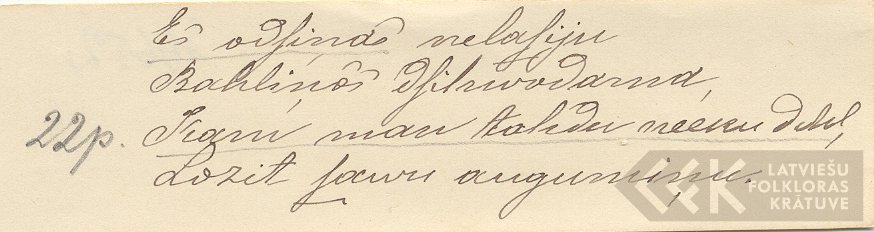 Es odsiņas nelasiju
Bahliņôs dsihwodama,
22p. Kam man tahdu neeku dehl,
Lozit sawu augumiņu.
LATVIEŠU
FOLKLORAS
KRĀTUVE